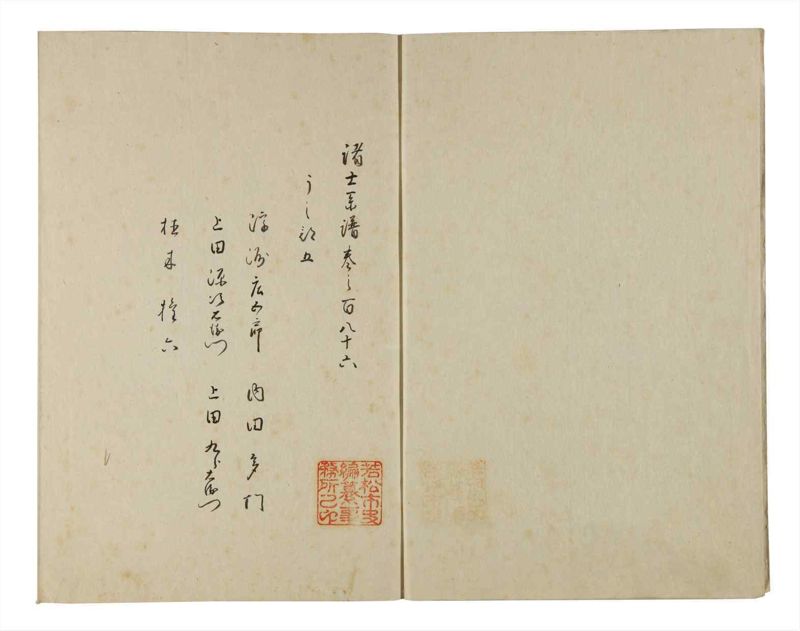 諸士系譜巻之百八十六
うし部五
浮洲広五郎 内田多門
上田源次右衛門 上田九郎右衛門
植木権六
若松市史
編纂事
務所之印